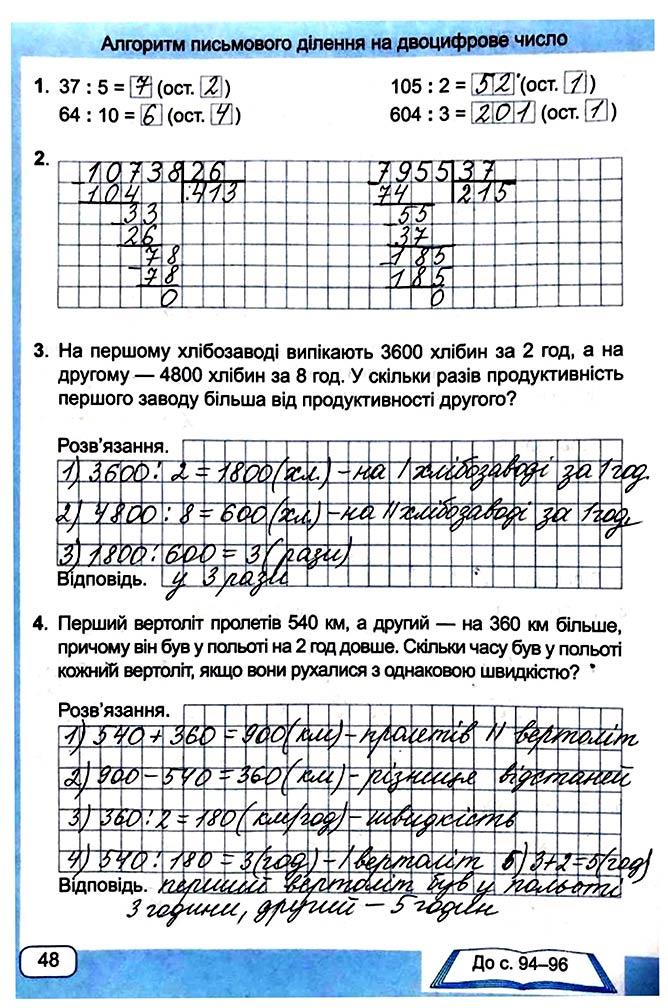 Алгоритм письмового ділення на двоцифрове число
1. 37 : 5 = 7 (ост. 2) 105 : 2 = 52 (ост. 1)
64 : 10 = 6 (ост. 4) 604 : 3 = 201 (ост. 1)
2. 10738 26 7955 37
104 413 74 215
33 55
26 37
78 185
78 185
0 0
3. На першому хлібозаводі випікають 3600 хлібин за 2 год, а на
другому — 4800 хлібин за 8 год. У скільки разів продуктивність
першого заводу більша від продуктивності другого?
Розв'язання.
1) 3600 : 2 = 1800 (хл.) – на I хлібозаводі за 1 год.
2) 4800 : 8 = 600 (хл.) – на II хлібозаводі за 1 год.
3) 1800 : 600 = 3 (рази)
Відповідь. у 3 рази
4. Перший вертоліт пролетів 540 км, а другий — на 360 км більше,
причому він був у польоті на 2 год довше. Скільки часу був у польоті
кожний вертоліт, якщо вони рухалися з однаковою швидкістю?
Розв'язання.
1) 540 + 360 = 900 (км) – пролетів II вертоліт
2) 900 – 540 = 360 (км) – різниця відстаней
3) 360 : 2 = 180 (км/год) – швидкість
4) 540 : 180 = 3 (год) – I вертоліт 5) 3 + 2 = 5 (год)
Відповідь. перший вертоліт був у польоті
3 години, другий – 5 годин
48
До с. 94–96